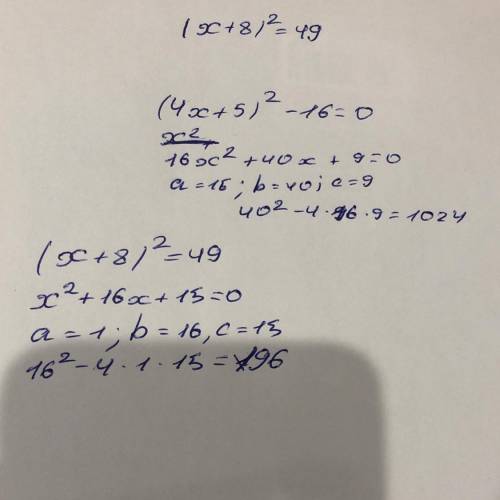 (x+8)² = 49
(4x+5)² - 16 = 0
x²
16x² + 40x + 9 = 0
a = 15; b = 40; c = 9
40² - 4 · 16 · 9 = 1024
(x+8)² = 49
x² + 16x + 15 = 0
a = 1; b = 16, c = 15
16² - 4 · 1 · 15 = 196